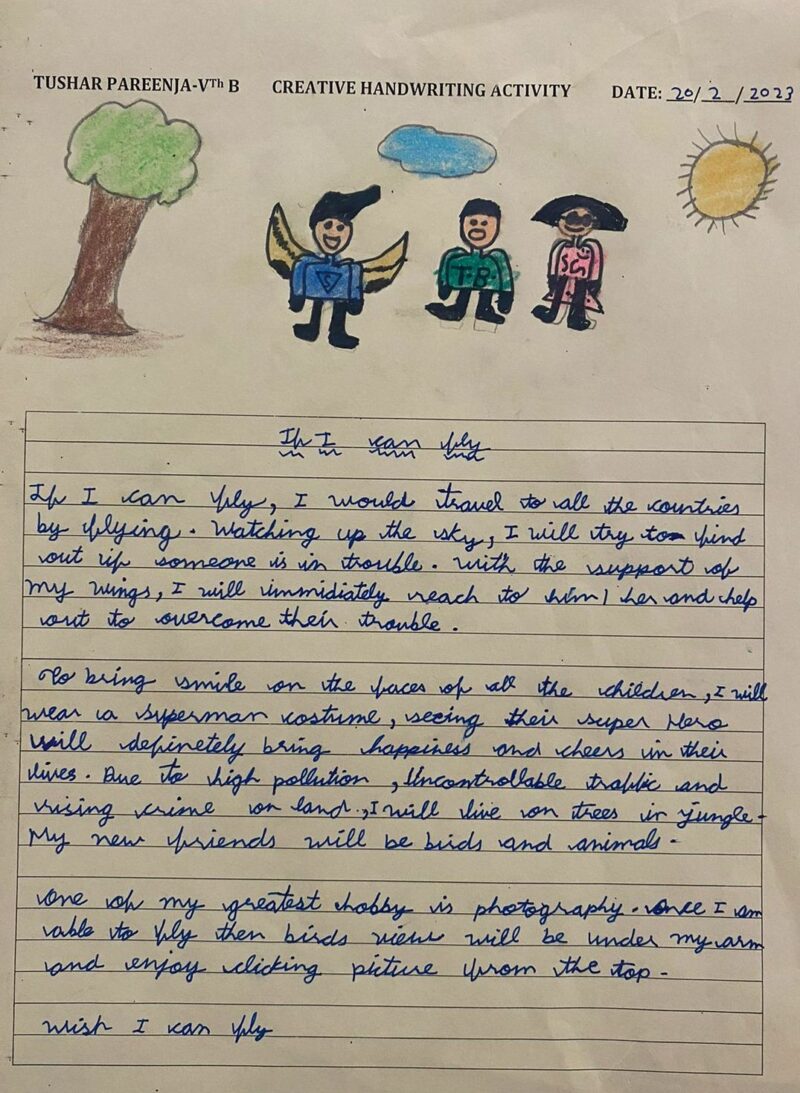 TUSHAR PAREENJA-VTh B CREATIVE HANDWRITING ACTIVITY DATE: 20/2/2023
S T.B SG
If I can fly
If I can fly, I would travel to all the countries
by flying. Watching up the sky, I will try to find
out if someone is in trouble. With the support of
my wings, I will immidiately reach to him/her and help
out to overcome their trouble.
To bring smile on the faces of all the children, I will
wear a superman costume, seeing their super Hero
will definetely bring happiness and cheers in their
lives. Due to high pollution, Uncontrollable traffic and
rising crime on land, I will live on trees in jungle.
My new friends will be birds and animals.
One of my greatest hobby is photography. once I am
able to fly then birds view will be under my arm
and enjoy clicking picture from the top.
Wish I can fly